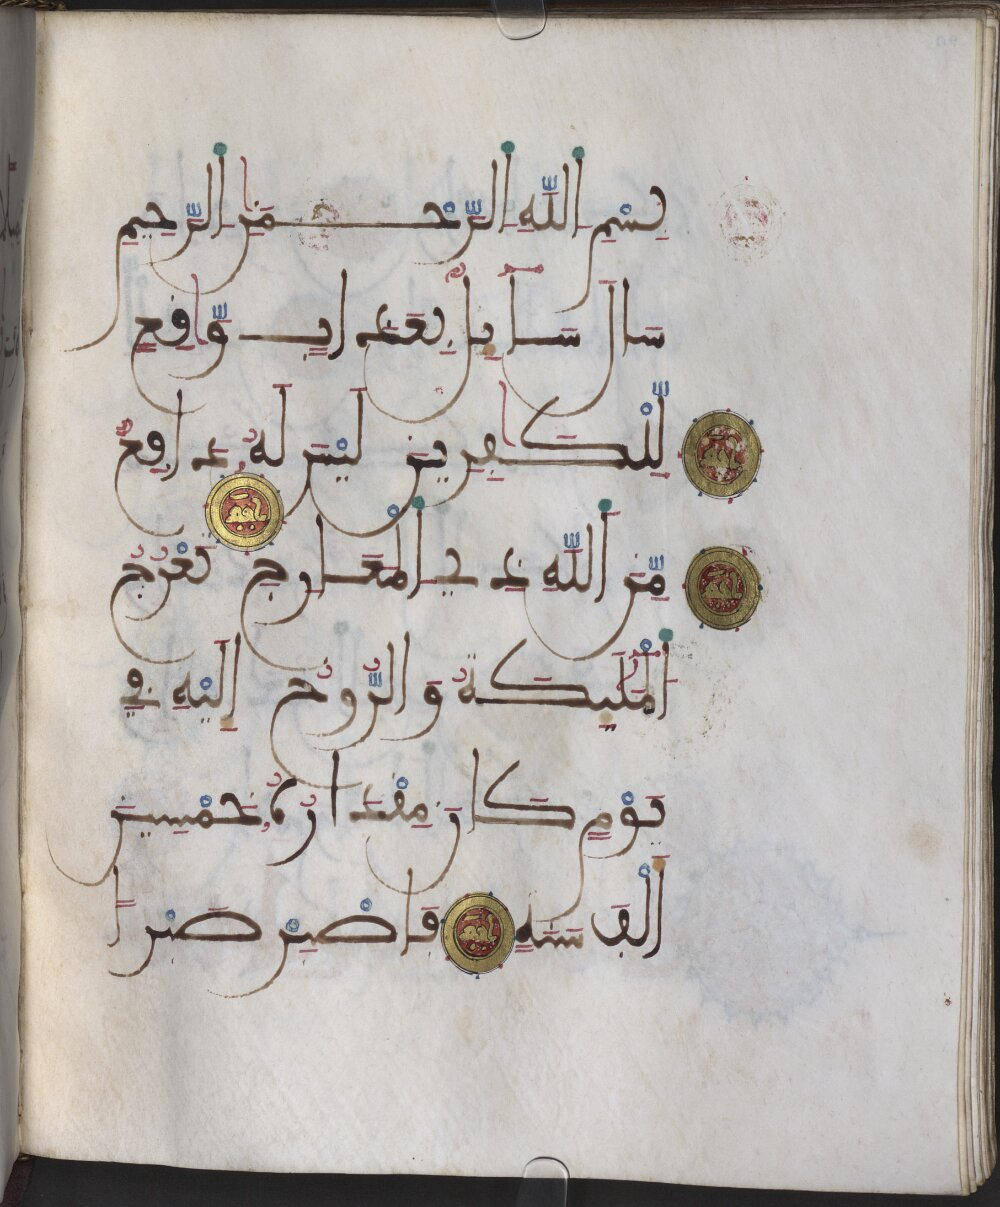 بِسْمِ اللَّهِ الرَّحْمَٰنِ الرَّحِيمِ
سَالَ سَآئِلٌ بِعَذَابٍ وَّاقِعٍ
لِّلْكَٰفِرِينَ لَيْسَ لَهُۥ دَافِعٌ
مِّنَ اللَّهِ ذِي الْمَعَارِجِ تَعْرُجُ
الْمَلَٰٓئِكَةُ وَالرُّوحُ إِلَيْهِ فِي
يَوْمٍ كَانَ مِقْدَارُهُۥ خَمْسِينَ
أَلْفَ سَنَةٍ فَاصْبِرْ صَبْرًا